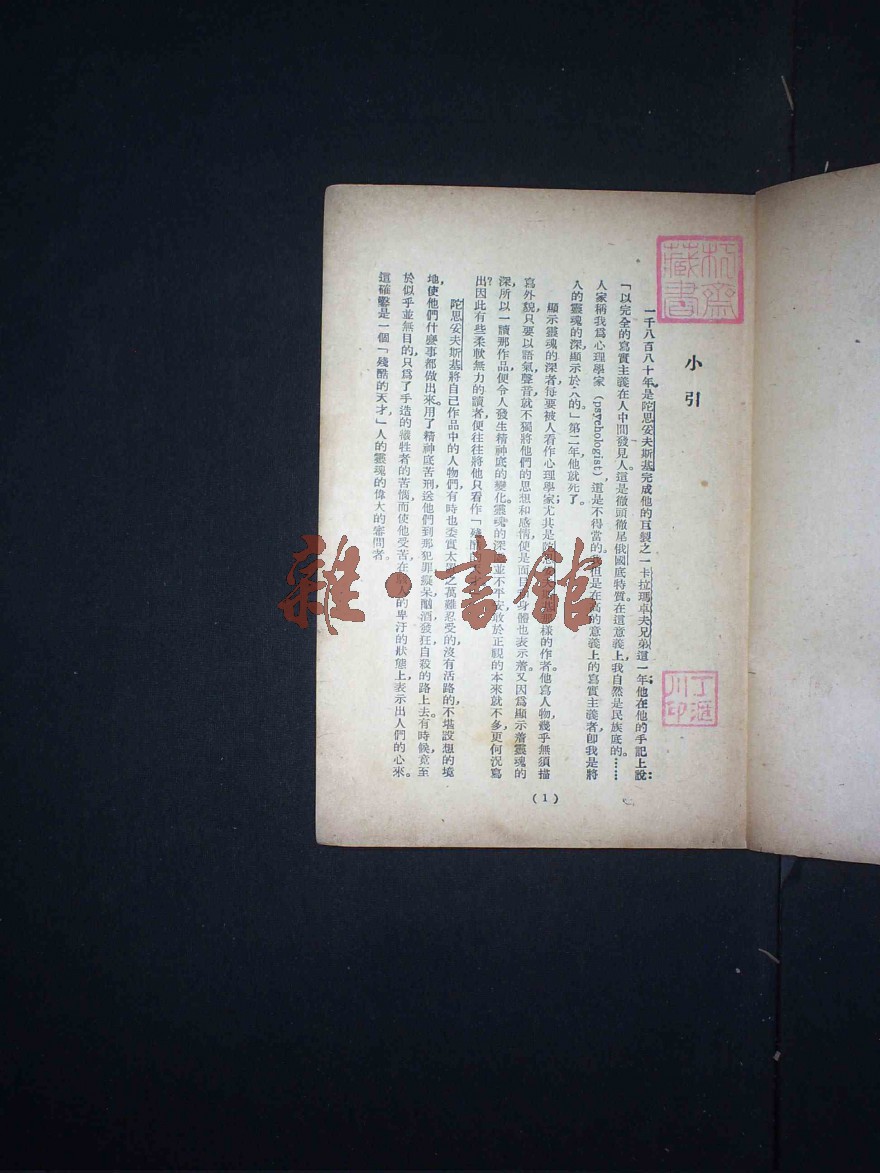 小引
一千八百八十年,是陀思妥夫斯基完成他的巨製之一卡拉瑪卓夫兄弟這一年;他在他的手記上說:
「以完全的寫實主義在人中間發見人。這是徹頭徹尾俄國底特質。在這意義上,我自然是民族底的。……
人家稱我爲心理學家(psychologist),這是不得當的。但是在高的意義上的寫實主義者,卽我是將
人的靈魂的深,顯示於人的。」第二年,他就死了。
顯示靈魂的深者,每要被人看作心理學家;尤其是陀思妥夫斯基那樣的作者。他寫人物,幾乎無須描
寫外貌,只要以語氣,聲音,就不獨將他們的思想和感情,便是面目和身體也表示着。又因爲顯示着靈魂的
深,所以一讀那作品,便令人發生精神底的變化。靈魂的深處並不平安,敢於正視的本來就不多,更何況寫
出?因此有些柔軟無力的讀者,便往往將他只看作「殘酷的天才」。
陀思妥夫斯基將自己作品中的人物們,有時也委實太置之萬難忍受的,沒有活路的,不堪設想的境
地,使他們什麼事都做出來。用了精神底苦刑,送他們到那犯罪,癡呆,酗酒,發狂,自殺的路上去。有時候,竟至
於似乎並無目的,只爲了手造的犧牲者的苦惱,而使他受苦,在駭人的卑汙的狀態上,表示出人們的心來。
這確鑿是一個「殘酷的天才」,人的靈魂的偉大的審問者。
(1)
藏書
丁滙川印
雜·書館